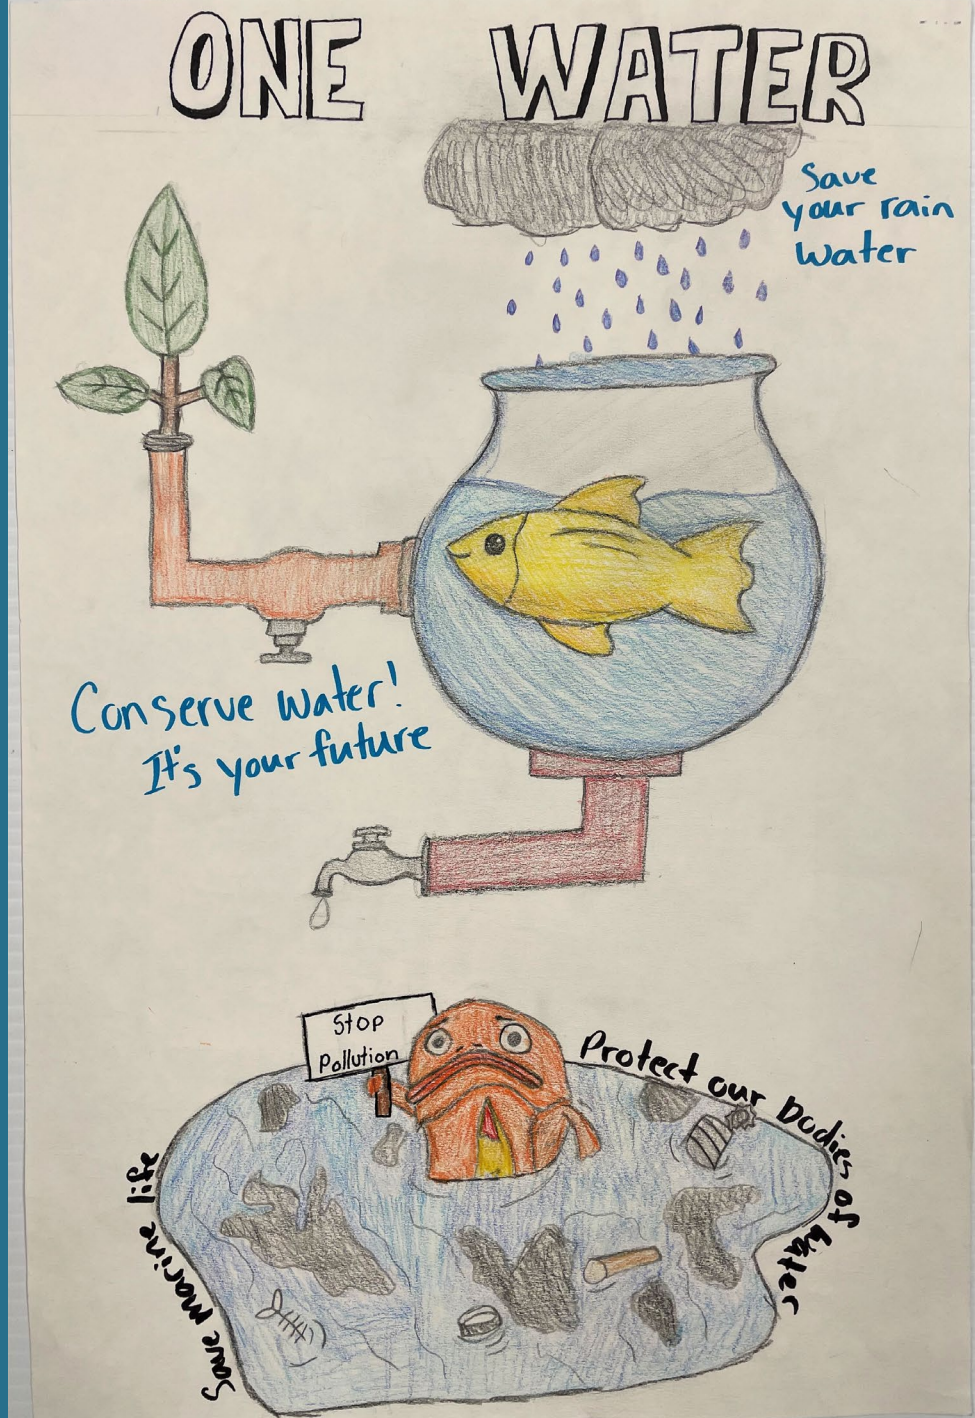 ONE WATER
Save
your rain
water
Conserve water!
It's your future
Stop
Pollution
Protect our bodies of water
Save marine life